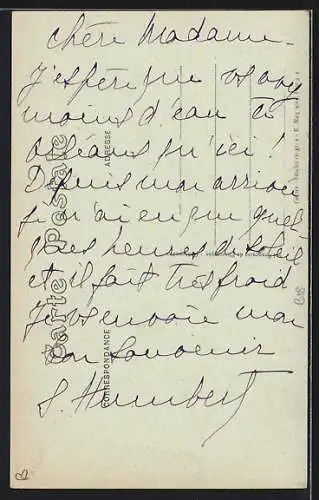 Chère Madame -
J'espère que vs avez
moins d'eau à
Orléans qu'ici !
Depuis mon arrivée
je n'ai eu que quel-
ques heures de soleil
et il fait très froid
Je vs envoie mon
bon souvenir
S. Humbert
Carte Postale
CORRESPONDANCE
ADRESSE
B18